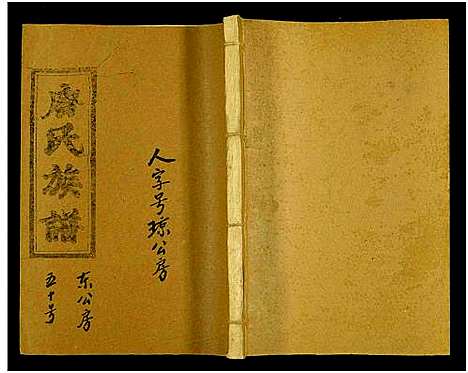 人字号琼公房
唐氏族譜
东公房
五十号